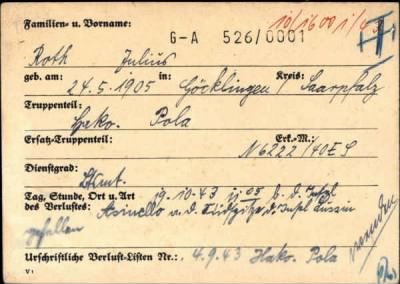 Familien- u. Vorname: 10/1600
G-A 526/0001
Roth Julius
geb. am: in: Kreis:
24.5.1905 Göcklingen / Saarpfalz
Truppenteil:
Hako. Pola
Ersatz-Truppenteil: Erk.-M.:
N 6222 /40 ES
Dienstgrad:
Lt.
Tag, Stunde, Ort u. Art 19.10.43 b. d. Insel
des Verlustes: Asinello u. d. Südspitze d. Insel Lussin
gefallen
wenden
Urschriftliche Verlust-Listen Nr.: 4.9.43 Hako. Pola
V1